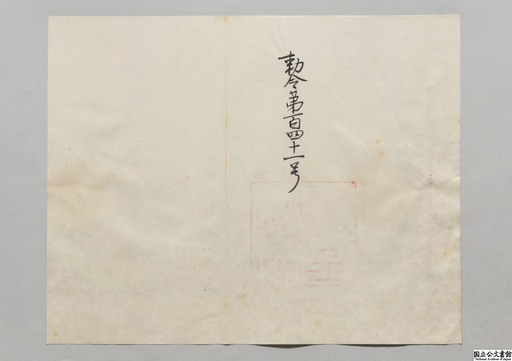 勅令第百四十一号
国立公文書館
National Archives of Japan